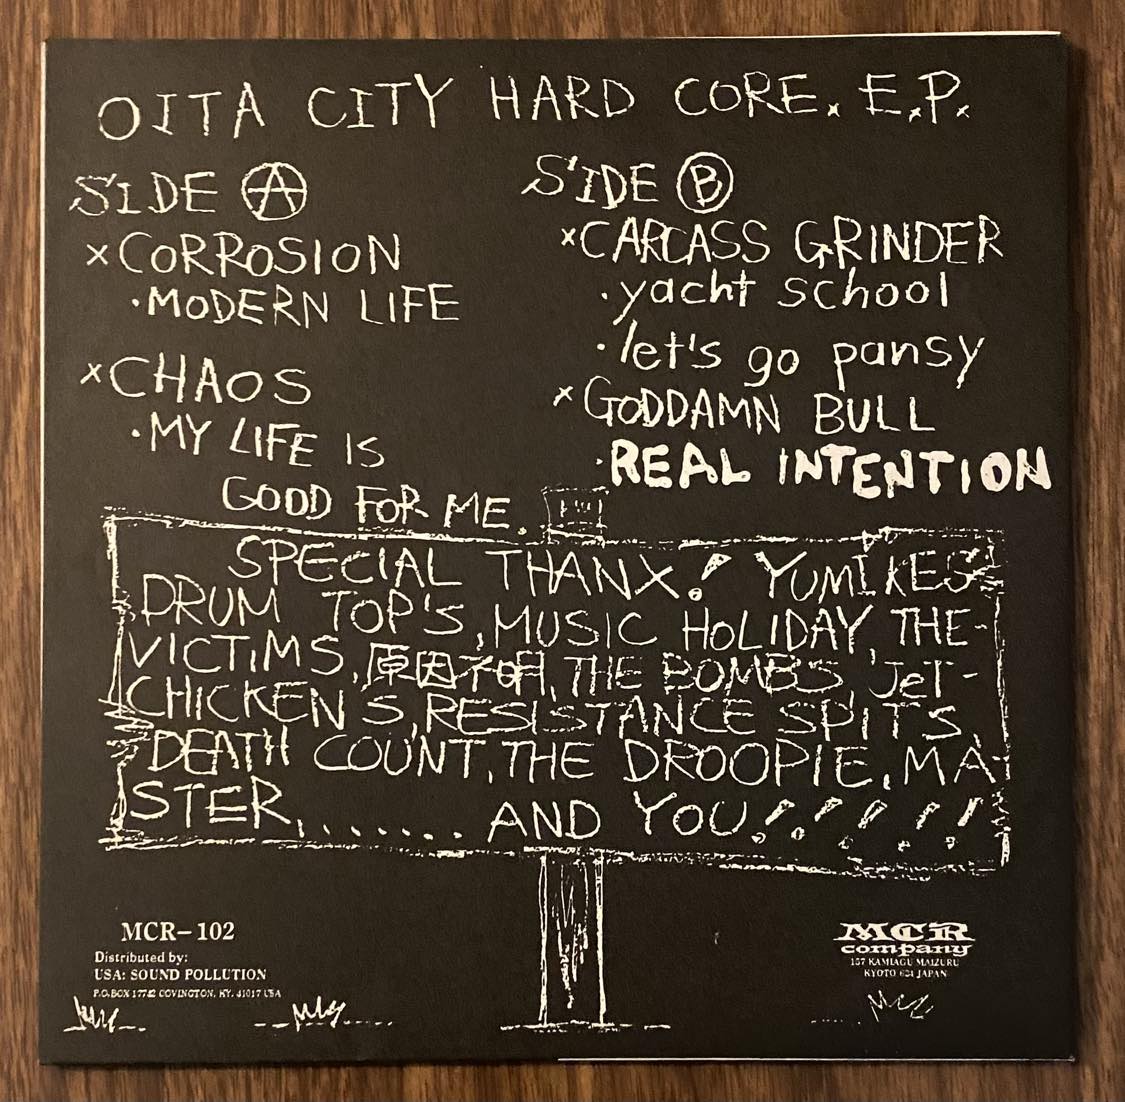 OITA CITY HARD CORE. E.P.
SIDE A
×CORROSION
·MODERN LIFE
×CHAOS
·MY LIFE IS
GOOD FOR ME.
SIDE B
×CARCASS GRINDER
·yacht school
·let's go pansy
×GODDAMN BULL
·REAL INTENTION
SPECIAL THANX! YUMIKES
DRUM TOP'S, MUSIC HOLIDAY, THE-
VICTIMS, 原因不明, THE BOMB'S, Jet-
CHICKEN'S, RESISTANCE SPIT'S,
DEATH COUNT, THE DROOPIE, MA-
STER, ....... AND YOU!!!!!!
MCR-102
Distributed by:
USA: SOUND POLLUTION
P.O.BOX 17742 COVINGTON, KY. 41017 USA
MCR
company
157 KAMIAGU MAIZURU
KYOTO 624 JAPAN